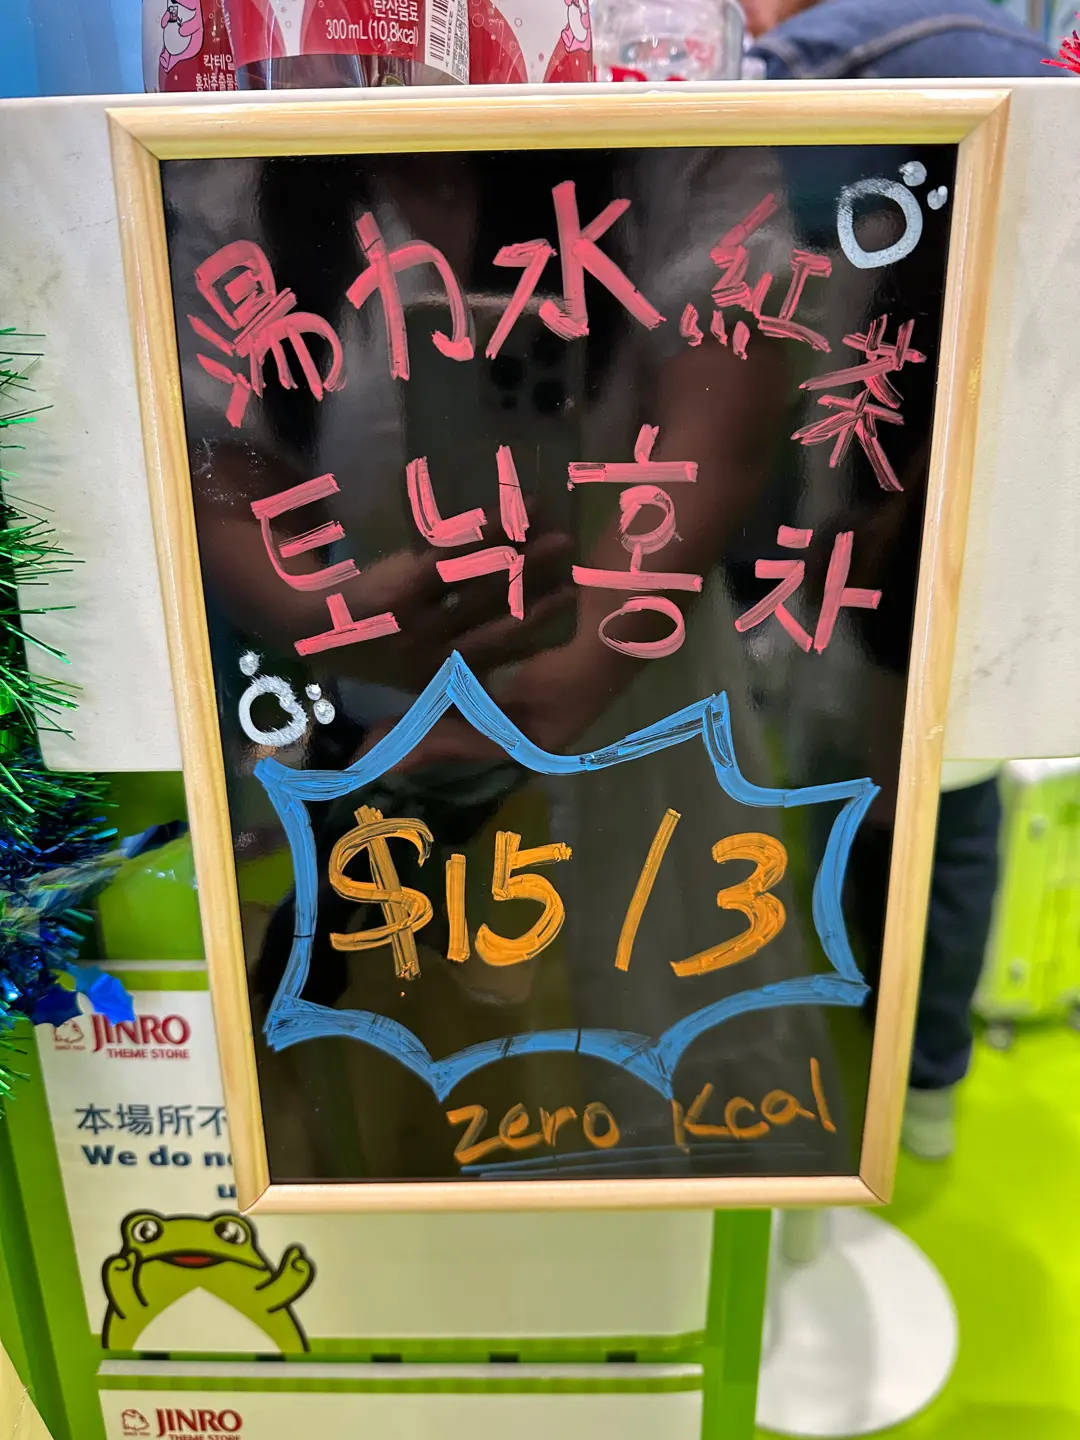 탄산음료
300 mL (10.8kcal)
칵테일
홍차추출물
湯力水紅茶
토닉홍차
$15/3
zero Kcal
JINRO
THEME STORE
本場所不
We do no
u
JINRO
THEME STORE